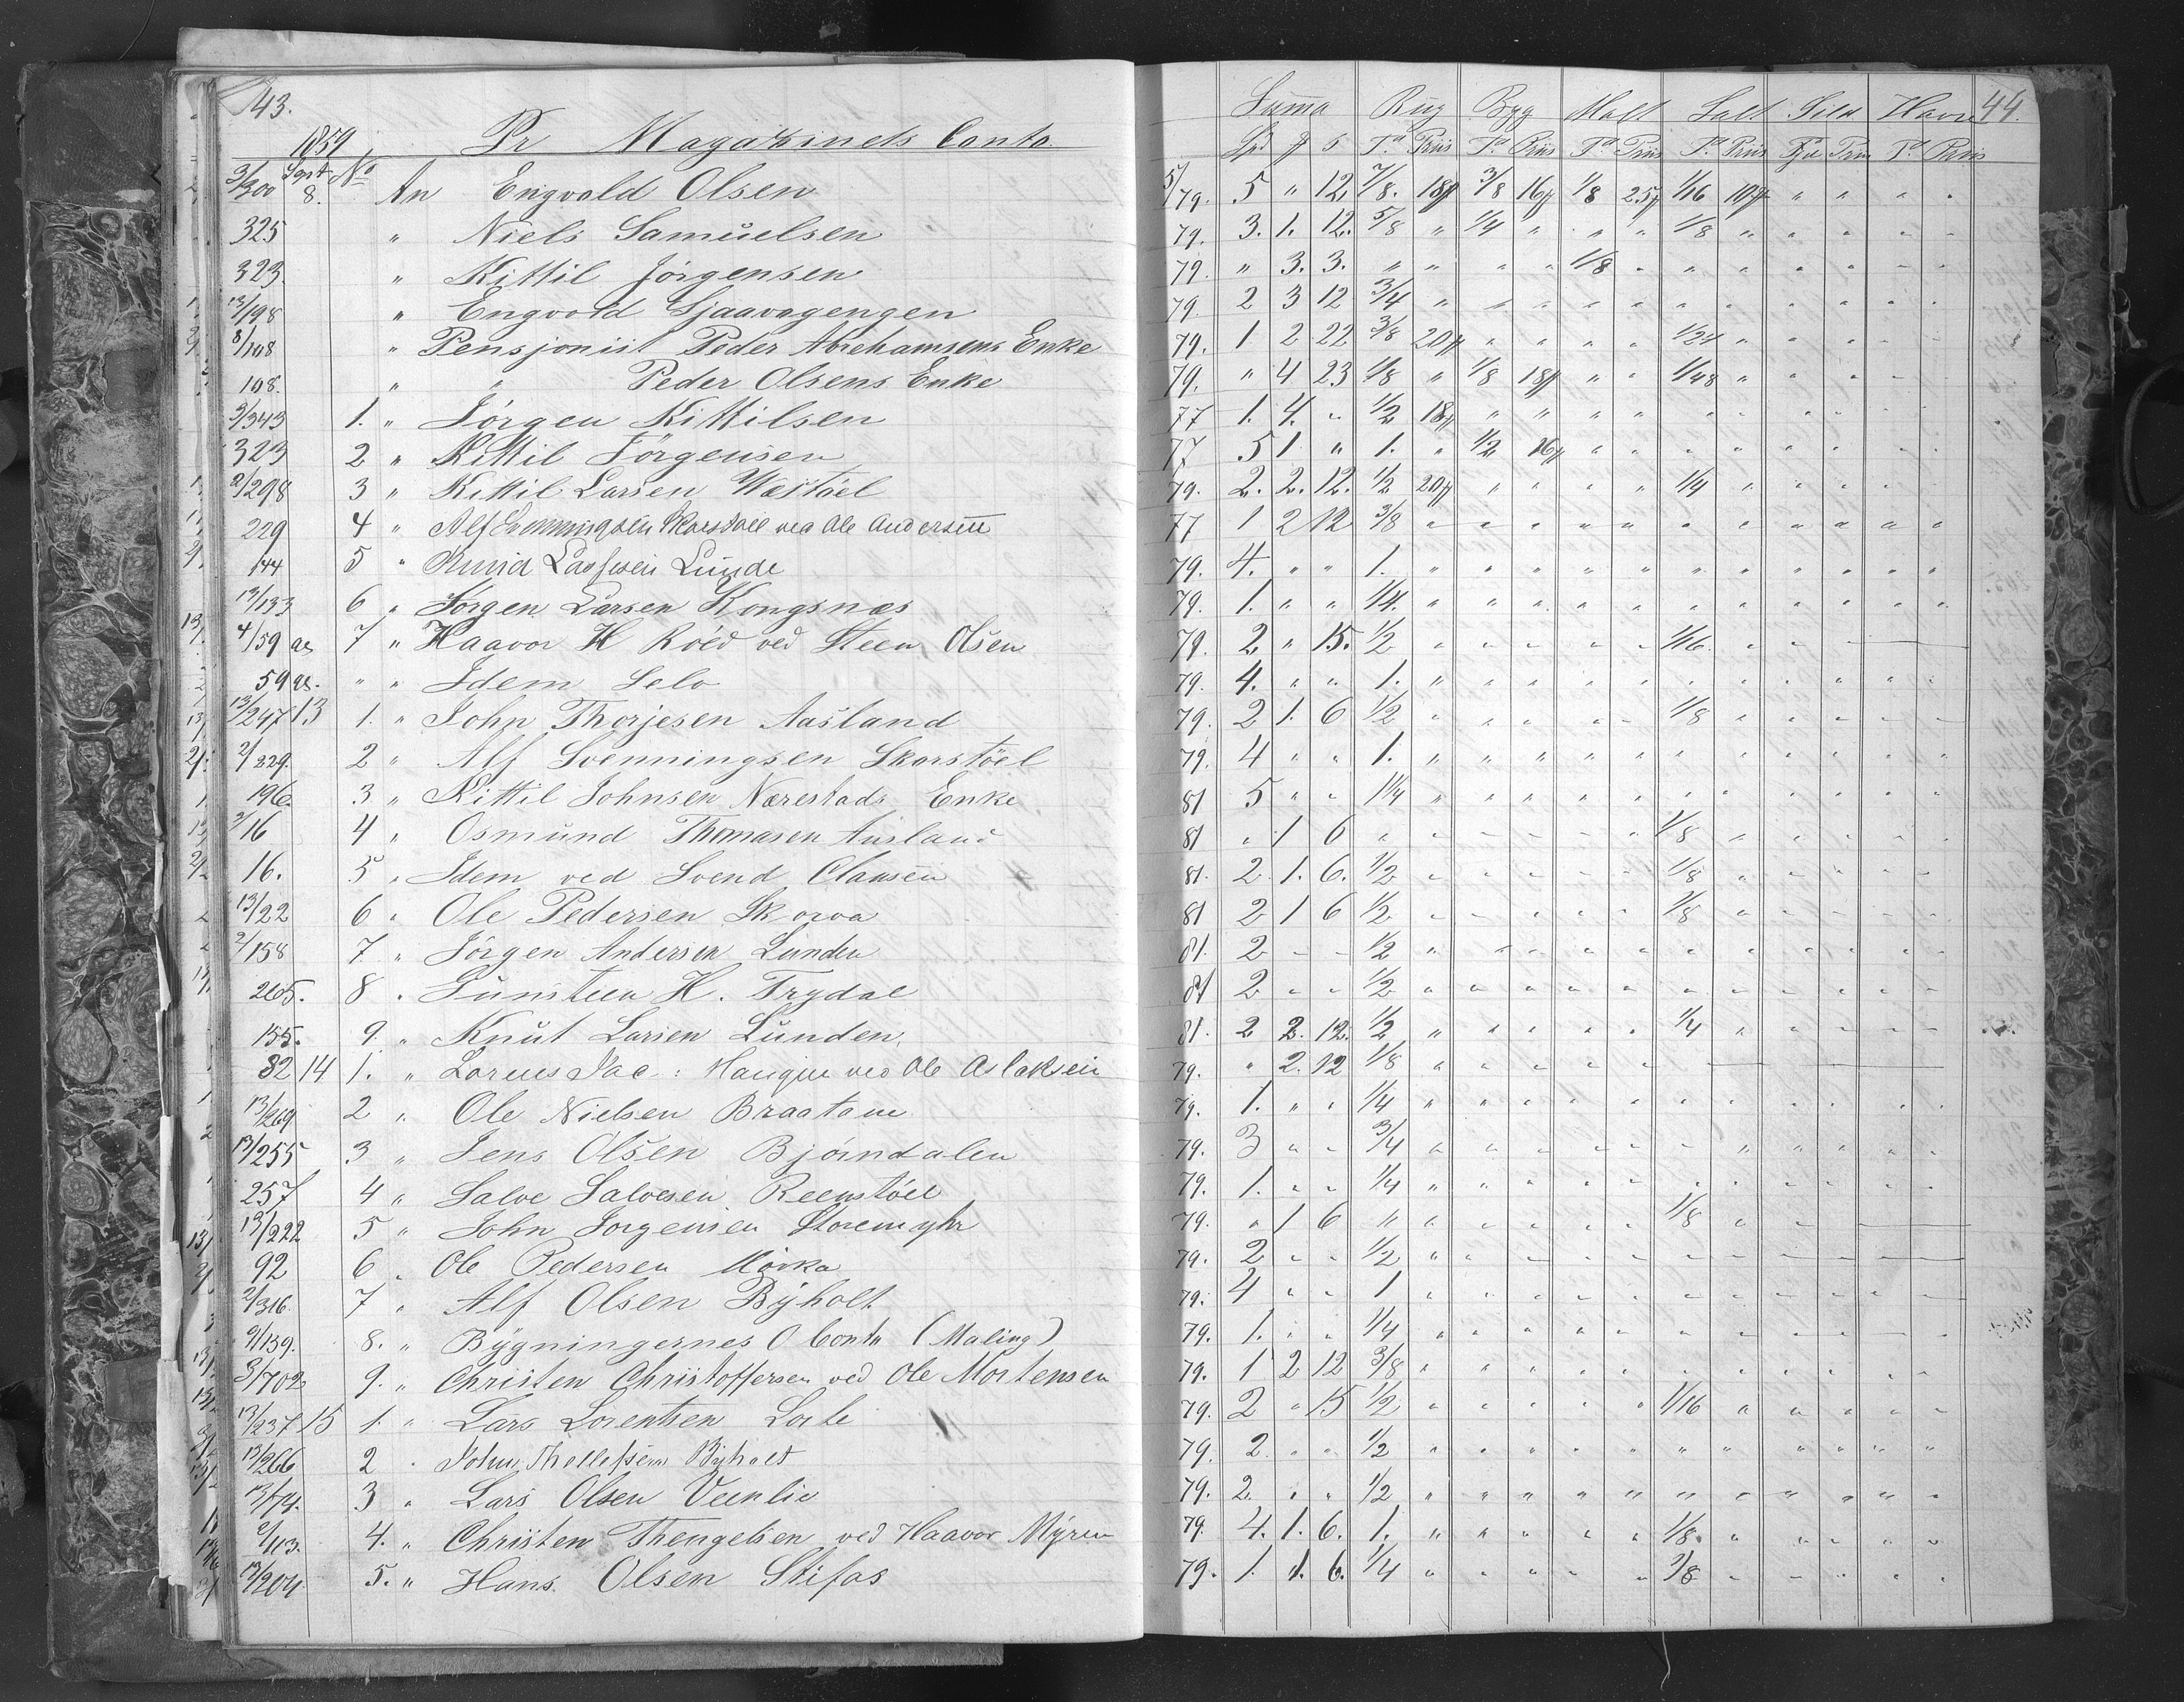 43.
1859 Pr Magazinets Conto.
Summa Rug Byg Malt Salt Sild Havre 44.
Spd ƒ s Td Priis Td Priis Td Priis Td Priis Tdr Priis Td Priis
3/300 Sept 8. No An Engvold Olsen 5/79. 5 " 12 7/8. 18ƒ 3/8 16ƒ 1/8 25ƒ 1/16 10ƒ " " " "
325 " Niels Samuelsen 79. 3. 1. 12. 5/8 " 1/4 " " " 1/8 " " " " "
323. " Kittil Jörgensen 79. " 3. 3. " " " " 1/8 " " " " " " "
13/198 " Engvold Sjaavagengen 79. 2 3 12 3/4 " " " " " " " " " " "
8/108 " Pensjonist Peder Abrahamsens Enke 79. 1 2 22 3/8 20ƒ " " " " 1/24 " " " " "
108. " " Peder Olsens Enke 79. " 4 23 1/8 " 1/8 18ƒ " " 1/48 " " " " "
3/343 1. " Jörgen Kittilsen 77 1. 4. " 1/2 18ƒ " " " " " " " " " "
323 2 " Kittil Jörgensen 77 5 1 " 1. " 1/2 16ƒ " " " " " " " "
2/298 3 " Kittil Larsen Wæstöel 79. 2. 2. 12. 1/2 20ƒ " " " " 1/4 " " " " "
229 4 " Alf Svenningsen Skarstöel ved Ole Andersen 77 1 2 12 3/8 " " " " " " " " " " "
144 5 " Knud Lassesen Lunde 79. 4. " " 1. " " " " " " " " " " "
13/133 6 " Jörgen Larsen Kongsnæs 79. 1. " " 1/4. " " " " " " " " " " "
4/59 as 7 " Haavor H Röed ved Steen Olsen 79. 2 " 15. 1/2 " " " " " 1/16. " "
59 as. " " Idem Selv 79. 4. " " 1. " " " " " " " " " " "
13/297 13 1. " John Thorjesen Aasland 79. 2 1. 6 1/2 " " " " " 1/8 " " " " "
2/229. 2 " Alf Svenningsen Skarstöel 79. 4 " " 1. " " " " " " " " " " "
196. 3 " Kittil Johnsen Nærestads Enke 81 5 " " 1 1/4 " " " " " " " " " " "
3/16 4 " Osmund Thomasen Ausland 81 " 1 6 " " " " " " 1/8 " " " " "
16. 5 " Idem ved Svend Clausen 81. 2 1. 6. 1/2 " " " " " 1/8 " " " " "
13/22 6 " Ole Pedersen Skorva 81 2 1 6 1/2 " " " " " 1/8 " " " " "
2/158 7 " Jörgen Andersen Lunden 81. 2 " " 1/2 " " " " " " " " " " "
205. 8 " Gunsteen H. Trydal 81 2 " " 1/2 " " " " " " " " " " "
155. 9. " Knut Larsen Lunden. 81. 2 2. 12. 1/2 " " " " " 1/4 " " " " "
82 14 1. " Lorens Jac: Haugen ved Ole Aslaksen 79. " 2. 12 1/8 " " " " " "
13/269 2 " Ole Nielsen Braatane 79. 1. " " 1/4 " " " " " " " " " " "
13/255 3 " Jens Olsen Bjørndalen 79. 3 " " 3/4 " " " " " " " " " " "
257 4 " Salve Salvesen Reenstöel 79. 1. " " 1/4 " " " " " " " " " " "
13/222 5 " John Jorgensen Storemyhr 79. " 1 6 " " " " " " 1/8 " "
92 6 " Ole Pedersen Mörka 79. 2 " " 1/2 " " " " " " " "
2/316. 7 " Alf Olsen Byholt 79. 4 " " 1 " " " " " " " " " " "
9/139. 8. " Bygningernes O Conto (Maling) 79. 1. " " 1/4 " " " " " " " " " " "
3/702 9. " Christen Christoffersen ved Ole Mortensen 79. 1 2 12 3/8 " " " " " " " " " " "
13/237 15 1. " Lars Lorentsen Lorte 79. 2 " 15 1/2 " " " " " 1/16 " " " " "
13/266 2 " John Thellefsen Byholt 79. 2 " " 1/2 " " " " " " " " " " "
13/74. 3 " Lars Olsen Veenlie 79. 2. " " 1/2 " " " " " " " " " " "
2/113. 4. " Christen Thengelsen ved Haavor Myren 79. 4. 1. 6. 1. " " " " " 1/8. " " " " "
13/204 5. " Hans Olsen Skifas 79. 1. 1. 6. 1/4 " " " " " 1/8 " " " " "